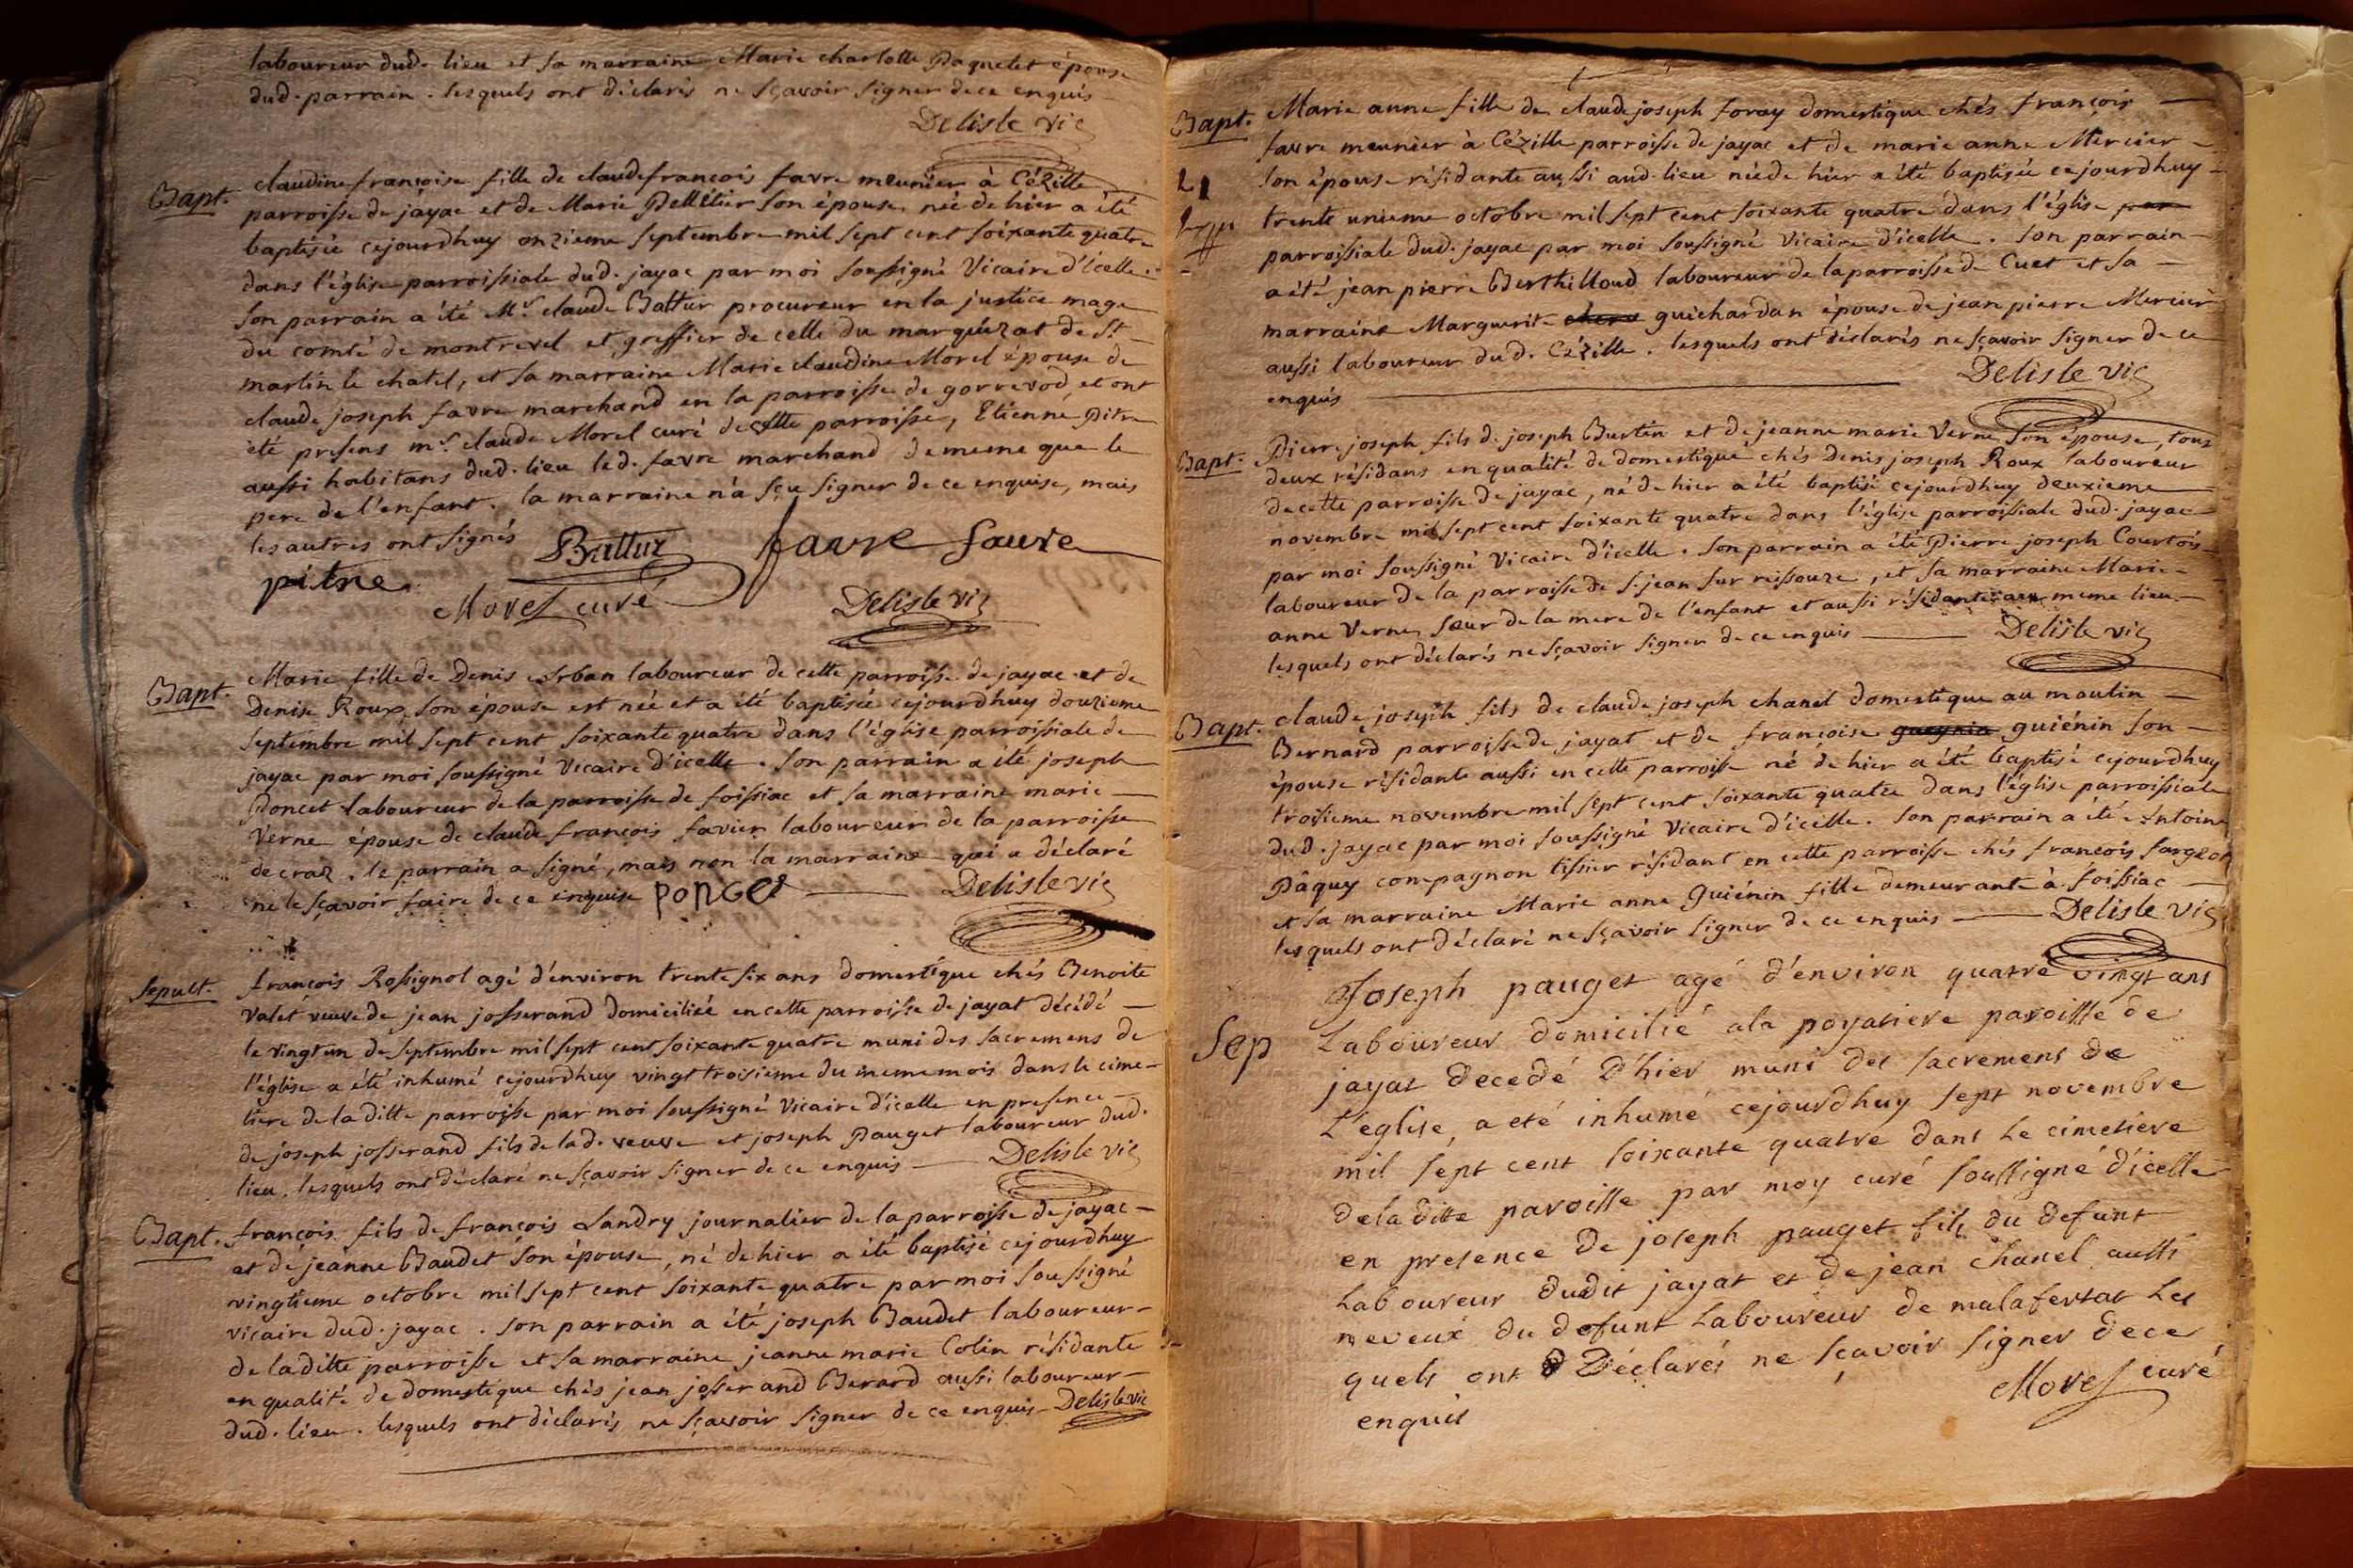 laboureur dud. lieu et sa marraine Marie charlotte Paquelet épouse
dud. parrain. lesquels ont déclarés ne sçavoir signer de ce enquis
Delisle vic
Bapt. claudine françoise fille de claudefrancois favre meunier à Cézille
parroisse de jayac et de Marie Pellétier son épouse, née de hier a été
baptisée cejourdhuy onzieme septembre mil sept cent soixante quatre
dans l'église parroissiale dud. jayac par moi soussigné Vicaire d'icelle.
son parrain a été Mr. claude Battur procureur en la justice mage
du comté de montrevel et greffier de celle du marquizat de St
martin le chatel, et sa marraine Marie claudine Morel épouse de
claude joseph favre marchand en la parroisse de gorrevod, et ont
été presens mr. claude Morel curé de cette parroisse, Etienne Pitre
aussi habitans dud. lieu led. favre marchand de meme que le
pere de l'enfant. la marraine n'a sçu signer de ce enquise, mais
les autres ont signés Battur favre favre
pitre Morel curé Delisle vic
Bapt. Marie fille de Denis Arban laboureur de cette parroisse de jayac et de
Denise Roux, son épouse est née et a été baptisée cejourdhuy douzieme
septembre mil sept cent soixante quatre dans l'église parroissiale de
jayac par moi soussigné Vicaire d'icelle. son parrain a été joseph
Poncet laboureur de la parroisse de foissiac et sa marraine marie
Verne épouse de claude francois favier laboureur de la parroisse
de craz. le parrain a signé, mais non la marraine qui a déclaré
ne le sçavoir faire de ce enquise ponCet Delisle vic
sepult. francois Rossignol agé d'environ trente six ans domestique chés Benoite
Valet veuve de jean josserand domiciliée en cette parroisse de jayat décédé
le vingt un de septembre mil sept cent soixante quatre muni des sacremens de
l'église a été inhumé cejourdhuy vingt troisieme du meme mois dans le cime-
tiere de la ditte parroisse par moi soussigné Vicaire d'icelle en presence
de joseph josserand fils de lad. veuve et joseph Pauget laboureur dud.
lieu. lesquels ont déclaré ne sçavoir signer de ce enquis Delisle vic
Bapt. françois fils de françois Landry journalier de la parroisse de jayac
et de jeanne Baudet son épouse, né de hier a été baptisé cejourdhuy
vingtieme octobre mil sept cent soixante quatre par moi soussigné
vicaire dud. jayac. son parrain a été joseph Baudet laboureur
de la ditte parroisse et sa marraine jeanne marie Colin résidante
en qualité de domestique chés jean josserand Berard aussi laboureur
dud. lieu. lesquels ont déclarés ne sçavoir signer de ce enquis Delisle vic
Bapt. Marie anne fille de claude joseph foray domestique chés françois
favre meunier à Cézille parroisse de jayac et de marie anne Mercier
son épouse résidante aussi aud. lieu née de hier a été baptisée cejourdhuy
trente unieme octobre mil sept cent soixante quatre dans l'église
parroissiale dud. jayac par moi soussigné Vicaire d'icelle. son parrain
a été jean pierre Berthilloud laboureur de la parroisse de Cuet et sa
marraine Marguerite guichardan épouse de jean pierre Mercier
aussi laboureur dud. Cézille. lesquels ont déclarés ne sçavoir signer de ce
enquis Delisle vic
Bapt. Pierre joseph fils de joseph Burtin et de jeanne marie Verne son épouse, tous
deux résidans en qualité de domestique chés Denis joseph Roux laboureur
de cette parroisse de jayac, né de hier a été baptisé cejourdhuy deuxieme
novembre mil sept cent soixante quatre dans l'église parroissiale dud. jayac
par moi soussigné Vicaire d'icelle. son parrain a été Pierre joseph Courtois
laboureur de la parroisse de s. jean sur reissouze, et sa marraine Marie
anne Verne, sœur de la mere de l'enfant et aussi résidante au meme lieu
lesquels ont déclarés ne sçavoir signer de ce enquis Delisle vic
Bapt. claude joseph fils de claude joseph chanel domestique au moulin
Bernard parroisse de jayat et de françoise guiénin son
épouse résidante aussi en cette parroisse né de hier a été baptisé cejourdhuy
troisieme novembre mil sept cent soixante quatre dans l'église parroissiale
dud. jayac par moi soussigné Vicaire d'icelle. son parrain a été Antoine
Pâquy compagnon tissier résidant en cette parroisse chés francois fargeot
et sa marraine Marie anne guiénin fille demeurante à foissiac
lesquels ont déclaré ne sçavoir signer de ce enquis Delisle vic
Joseph pauget agé d'environ quatre vingt ans
Sep Laboureur domicilié ala poyatiere paroisse de
jayat decedé d'hier muni des sacremens de
L'eglise, a eté inhumé cejourdhuy sept novembre
mil sept cent soixante quatre dans le cimetiere
dela ditte paroisse par moy curé soussigné d'icelle
en presence de joseph pauget fils du defunt
Laboureur dudit jayat et de jean chanel aussi
neveux du defunt Laboureur de malafertat Les
quels ont Déclarés ne sçavoir signer dece
enquis Morel curé